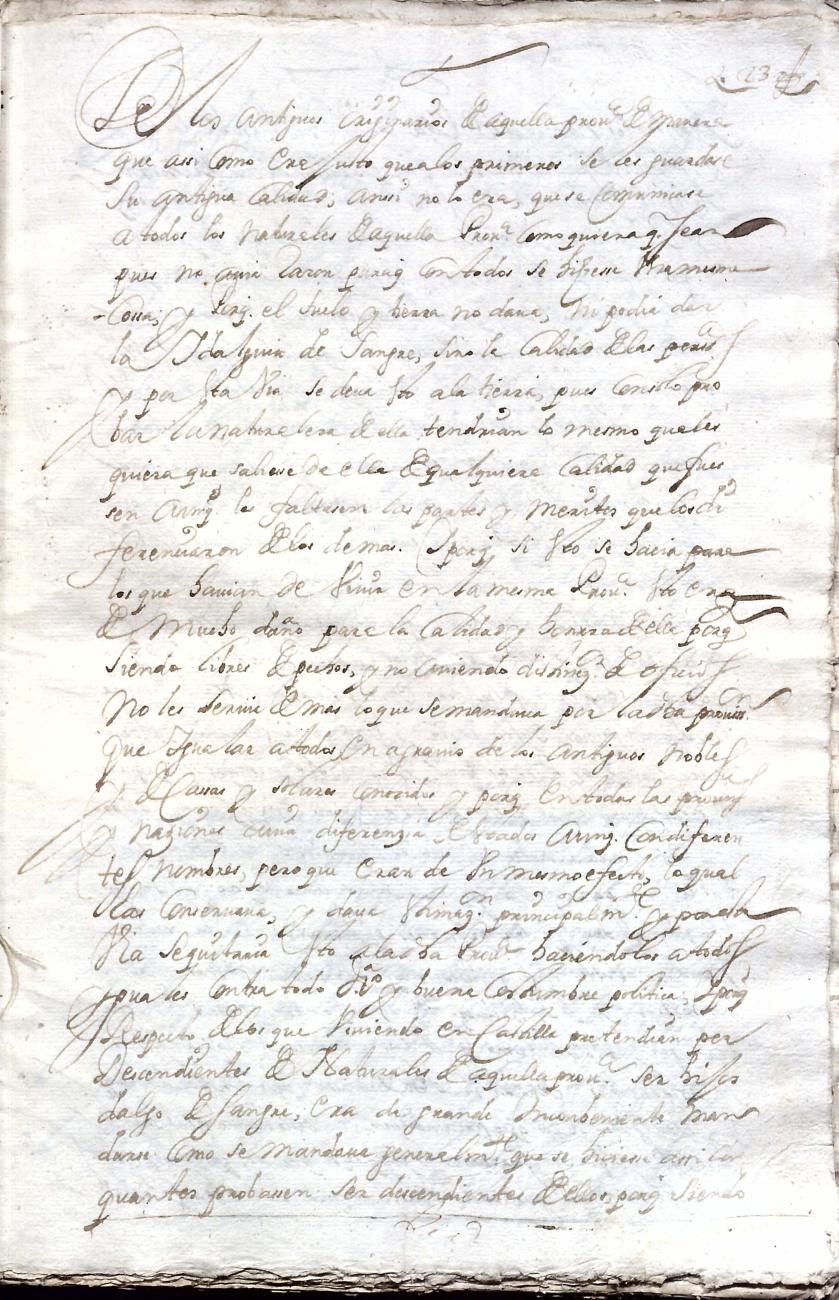 23
De los antiguos originarios de aquella prou.ª de manera
que assi como era justo que a los primeros se les guardase
su antigua calidad; ansi no lo era, que se comunicase
a todos los naturales de aquella Prou.ª como quiera q. sean
pues no auia razon para q con todos se hisiesse vna mesma
cossa, y porq. el suelo y tierra no daua, ni podia dar
la Ydalguia de sangre, sino la calidad de las pers.s
y por esta via se deua esto a la tierra, pues con solo pro
bar la naturaleza de ella tendrian lo mesmo quales
quiera que saliese de ella de qualquiera calidad que fues
sen aunq. les faltasen las partes y meritos que los di
ferenciaron de los demas. Y porq si esto se hacia para
los que hauian de viuir en la mesma Prou.ª esto era
de mucho daño para la calidad y honrra de ella porq
siendo libres de pechos, y no auiendo distinç.on de oficios
No les seruia de mas lo que se mandaua por la dha prouis.on
que igualar a todos en agrauio de los antiguos nobles
y de cassas y solares conozidos y porq en todas las prouy.s
y naziones auia diferenzia de estados aunq. con diferen
tes nombres, pero que eran de vn mesmo efecto, lo qual
las conseruaua, y daua estimaç.on principalm.te y por esta
via se quitaria esto a la dha Prou.ª haciendolos a todos
yguales contra todo dr.º y buena costumbre politica; Y porq
Respecto de los que viuiendo en Castilla pretendian por
Descendientes de Naturales de aquella prou.ª ser hijos
dalgo de sangre, era de grande inconbeniente man
darse como se mandaua generalm.te que se hiciese assi con
quantos probassen ser descendientes de ellos, porq siendo